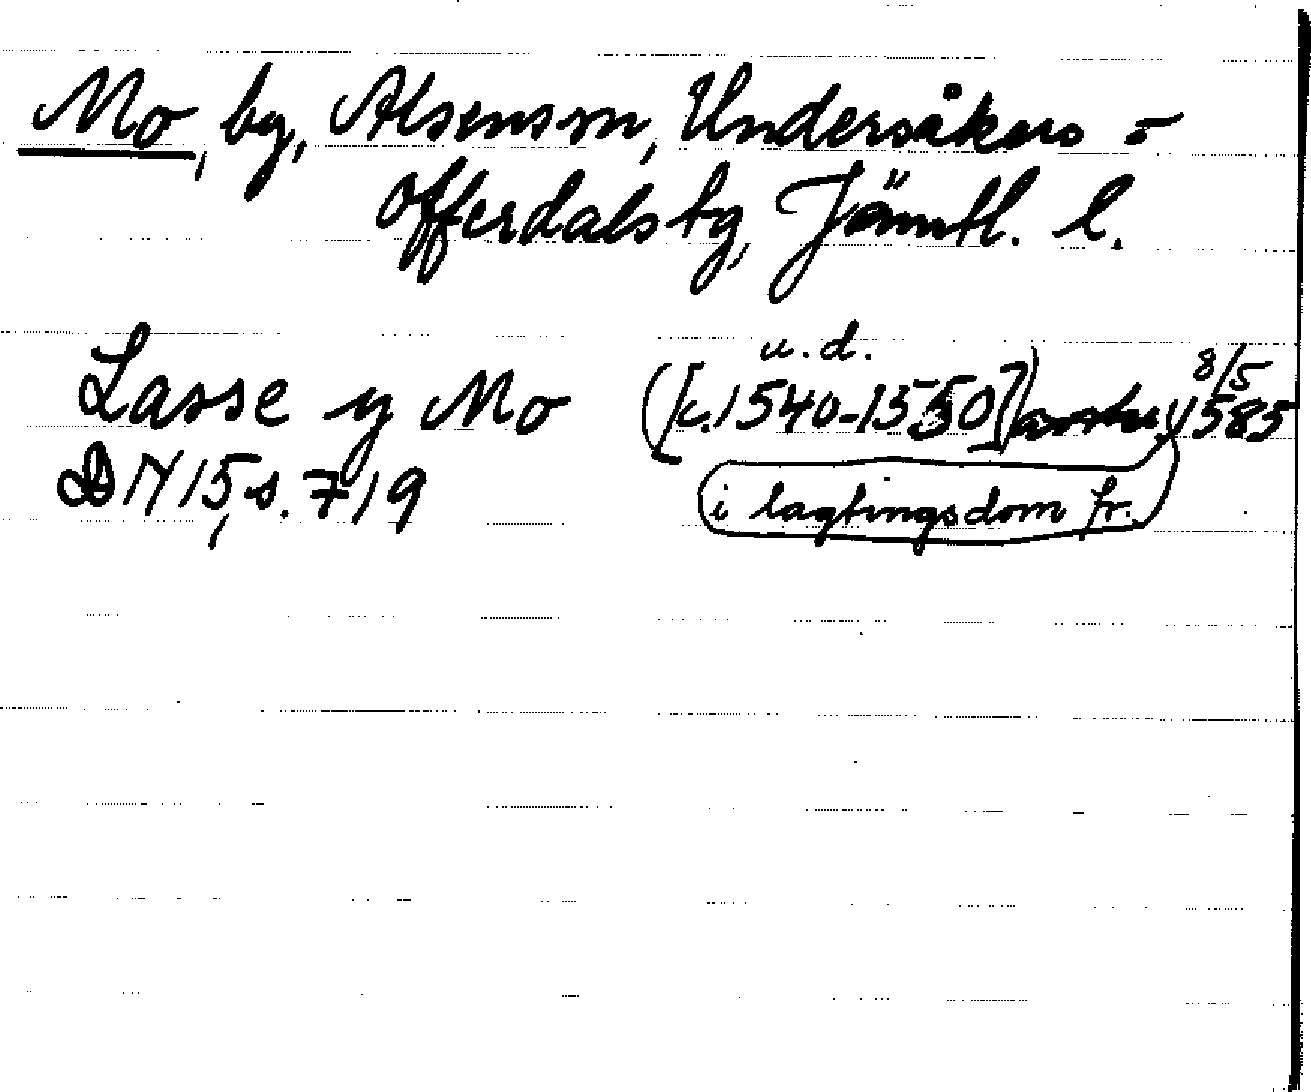 Mo, by, Alsens sn, Undersåkers o
Offerdals tg, Jämtl. l.
u.d. 8/5
Lasse y Mo ([c. 1540-1550]) avskr. 1585
DN 15, s. 719 i lagtingsdom fr.